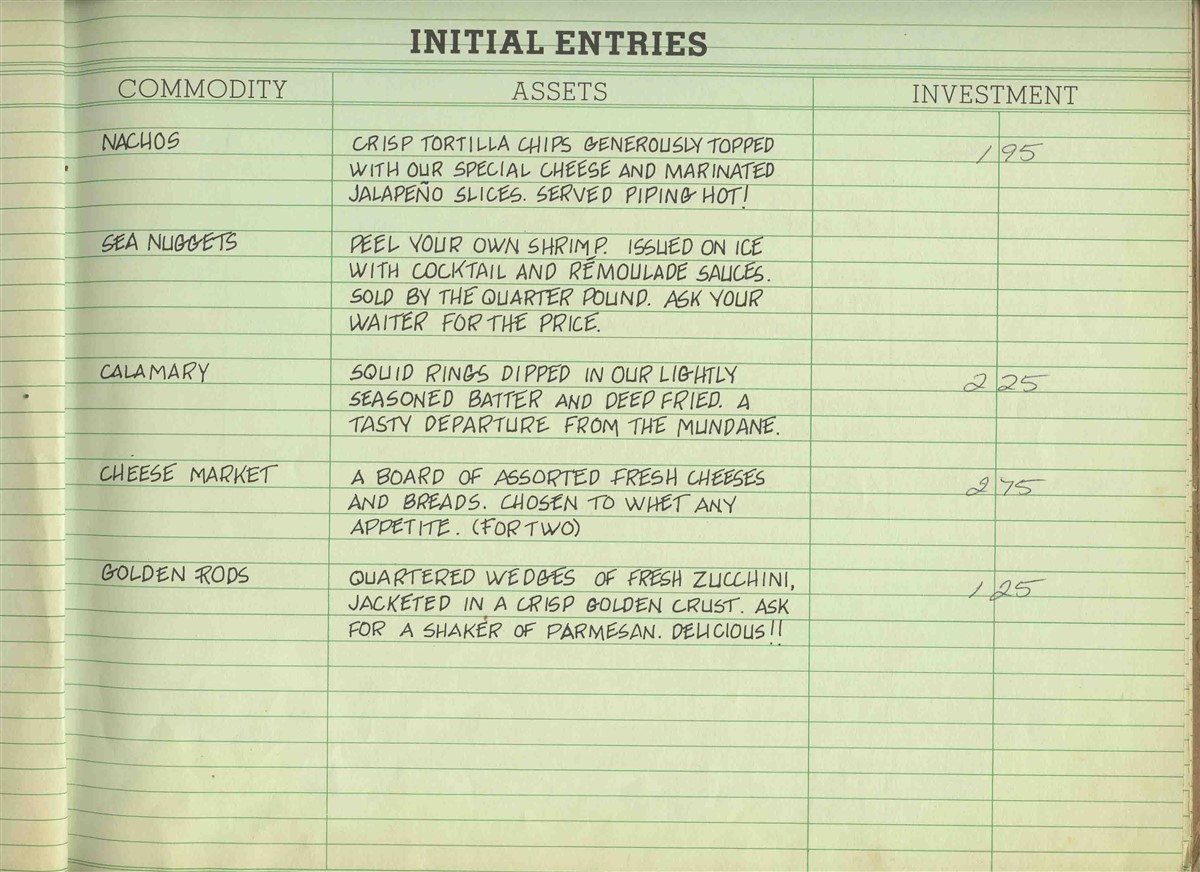 INITIAL ENTRIES
COMMODITY ASSETS INVESTMENT
NACHOS CRISP TORTILLA CHIPS GENEROUSLY TOPPED 1 95
WITH OUR SPECIAL CHEESE AND MARINATED
JALAPEÑO SLICES. SERVED PIPING HOT!
SEA NUGGETS PEEL YOUR OWN SHRIMP. ISSUED ON ICE
WITH COCKTAIL AND RÉMOULADE SAUCES.
SOLD BY THE QUARTER POUND. ASK YOUR
WAITER FOR THE PRICE.
CALAMARY SQUID RINGS DIPPED IN OUR LIGHTLY 2 25
SEASONED BATTER AND DEEP FRIED. A
TASTY DEPARTURE FROM THE MUNDANE.
CHEESE MARKET A BOARD OF ASSORTED FRESH CHEESES 2 75
AND BREADS. CHOSEN TO WHET ANY
APPETITE. (FOR TWO)
GOLDEN RODS QUARTERED WEDGES OF FRESH ZUCCHINI, 1 25
JACKETED IN A CRISP GOLDEN CRUST. ASK
FOR A SHAKER OF PARMESAN. DELICIOUS!!